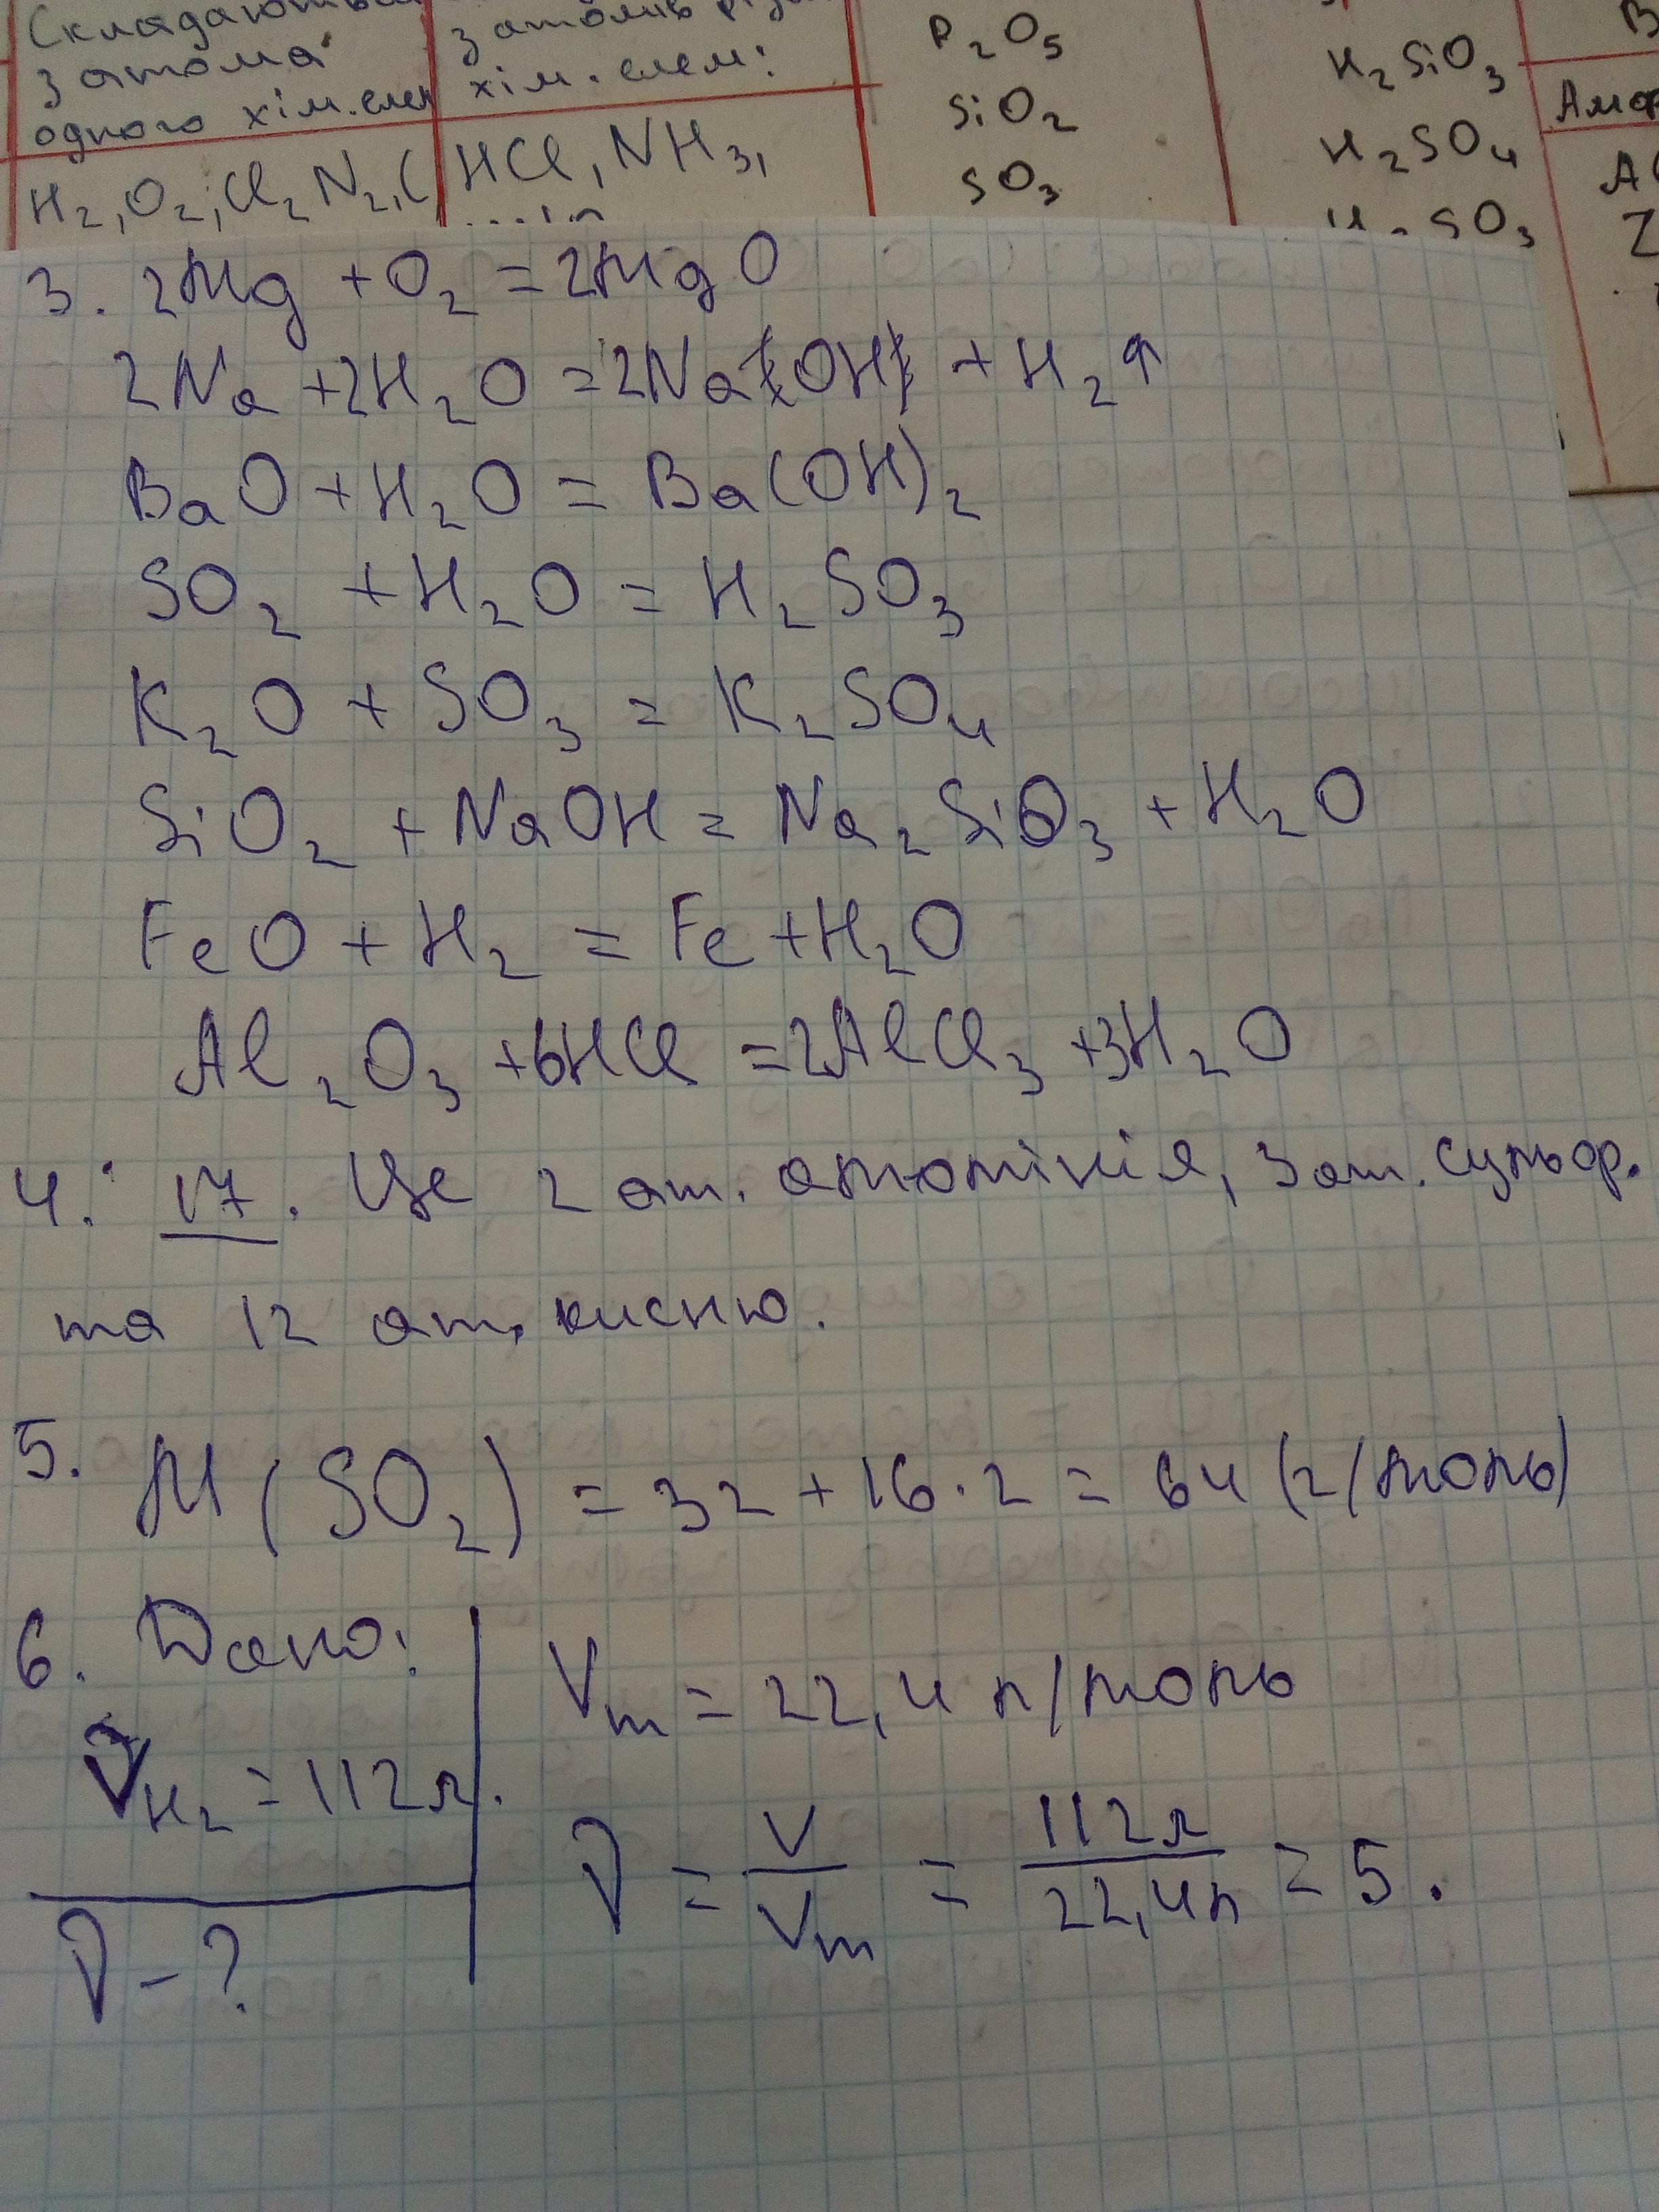 Складаються
з атома
одного хім. елем
з атомів різн
хім. елем:
H₂, O₂, Cl₂ N₂, C
HCl, NH₃,
P₂O₅
SiO₂
SO₃
H₂SiO₃
H₂SO₄
SO₃
В
Амор
Al
Z
3. 2Mg + O₂ = 2MgO
2Na + 2H₂O = 2NaOH + H₂↑
BaO + H₂O = Ba(OH)₂
SO₂ + H₂O = H₂SO₃
K₂O + SO₃ = K₂SO₄
SiO₂ + NaOH = Na₂SiO₃ + H₂O
FeO + H₂ = Fe + H₂O
Al₂O₃ + 6HCl = 2AlCl₃ + 3H₂O
4. 17. Це 2 ат. алюмінія, 3 ат. сульфр.
та 12 ат. кисню.
5. M(SO₂) = 32 + 16 · 2 = 64 (г/моль)
6. Дано:
V H₂ = 112 л.
ν - ?
Vm = 22,4 л/моль
ν = V/Vm = 112л/22,4л = 5.